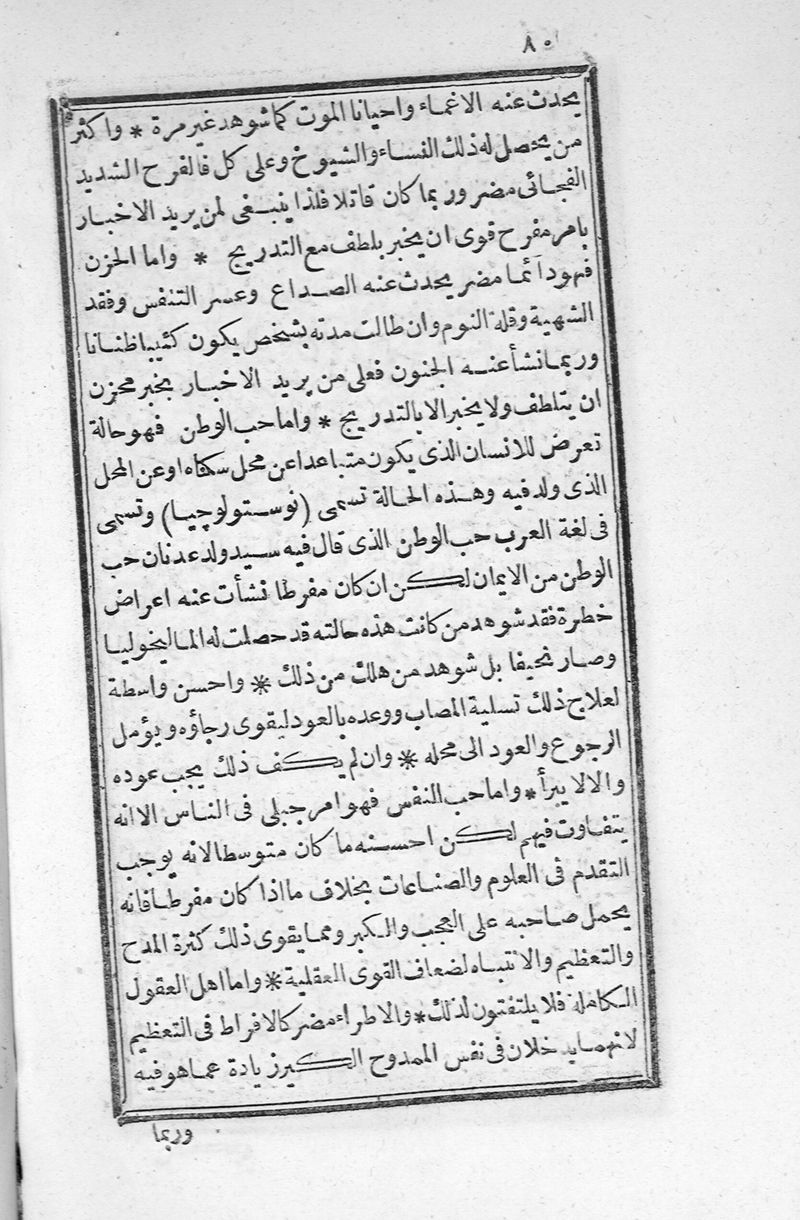 ٨٠
يحدث عنه الاغماء واحيانا الموت كما شوهد غير مرة * واكثر
من يحصل له ذلك النساء والشيوخ وعلى كل فالفرح الشديد
الفجائى مضر وربما كان قاتلا فلذا ينبغى لمن يريد الاخبار
بامر مفرح قوى ان يخبر بلطف مع التدريج * واما الحزن
فهو دآئما مضر يحدث عنه الصداع وعسر التنفس وفقد
الشهية وقلة النوم وان طالت مدته بشخص يكون كئيبا ظنانا
وربما نشأ عنه الجنون فعلى من يريد الاخبار بخبر محزن
ان يتلطف ولا يخبر الا بالتدريج * واما حب الوطن فهو حالة
تعرض للانسان الذى يكون متباعدا عن محل سكناه او عن المحل
الذى ولد فيه وهذه الحالة تسمى (نوستولوچيا) وتسمى
فى لغة العرب حب الوطن الذى قال فيه سيد ولد عدنان حب
الوطن من الايمان لكن ان كان مفرطا نشأت عنه اعراض
خطرة فقد شوهد من كانت هذه حالته قد حصلت له الماليخوليا
وصار نحيفا بل شوهد من هلك من ذلك * واحسن واسطة
لعلاج ذلك تسلية المصاب ووعده بالعود ليقوى رجاؤه ويؤمل
الرجوع والعود الى محله * وان لم يكف ذلك يجب عوده
والا لا يبرأ * واما حب النفس فهو امر جبلى فى الناس الا انه
يتفاوت فيهم لكن احسنه ما كان متوسطا لانه يوجب
التقدم فى العلوم والصناعات بخلاف ما اذا كان مفرطا فانه
يحمل صاحبه على العجب والكبر ومما يقوى ذلك كثرة المدح
والتعظيم والانتباه لضعاف القوى العقلية * واما اهل العقول
الكاملة فلا يلتفتون لذلك * والاطراء مضر كالافراط فى التعظيم
لانهما يدخلان فى نفس الممدوح الكبر زيادة عما هو فيه
وربما